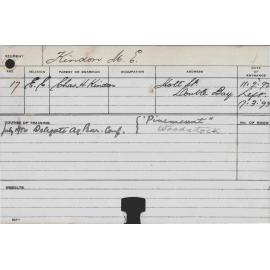 Kindon M. E.
AGE RELIGION PARENT OR GUARDIAN OCCUPATION ADDRESS DATE OF ENTRANCE
17 C.E. Chas. H. Kindon Holt St. 11.2.92
Double Bay Left
7.2.93
COURSE OF TRAINING NO. OF ROOM
July 1950 Delegate Ag. Bur. Conf. { "Pinemount"
Woodstock
RESULTS